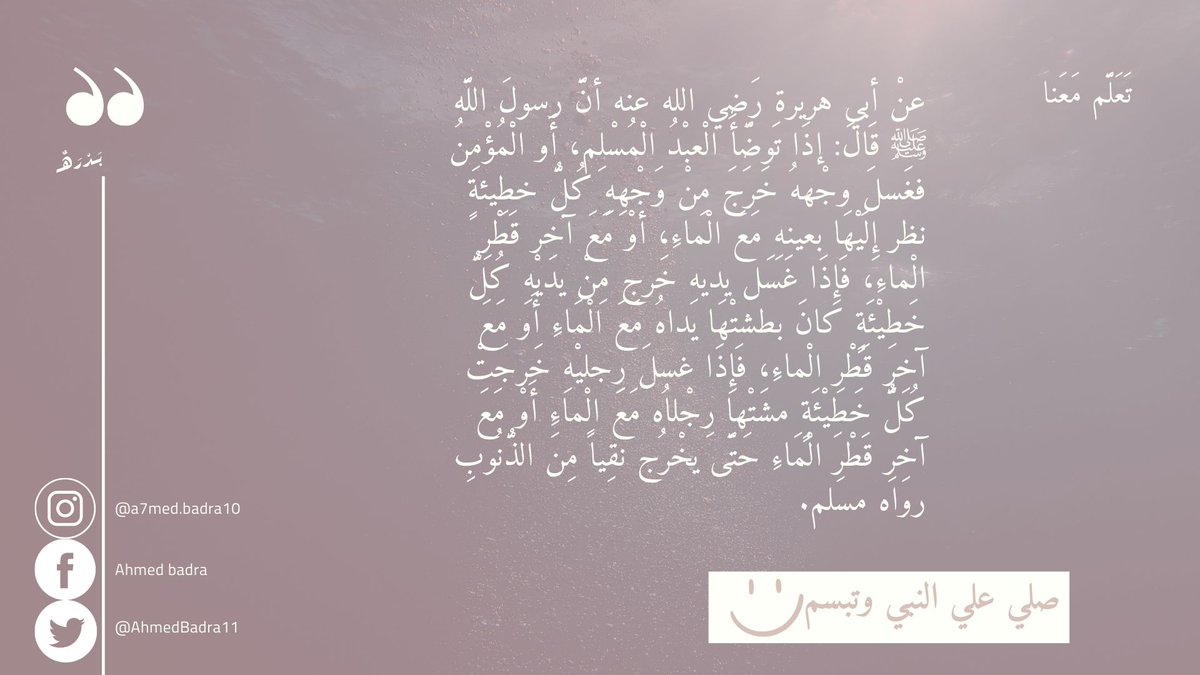 تَعَلَّم مَعَنا
عنْ أبي هريرة رَضي الله عنه أنّ رسولَ اللَّه
ﷺ قَالَ: إذَا تَوضَّأَ الْعبْدُ الْمُسْلِم، أَو الْمُؤْمِنُ
فغَسلَ وجْههُ خَرَجَ مِنْ وَجْهِهِ كُلُّ خطِيئةٍ
نظر إِلَيْهَا بِعينهِ مَعَ الْمَاءِ، أوْ مَعَ آخِر قَطْرِ
الْماءِ، فَإِذَا غَسَل يديهِ خَرج مِنْ يديْهِ كُلُّ
خَطِيْئَةٍ كانَ بطشتْهَا يداهُ مَعَ الْمَاءِ أَو مَعَ
آخِرِ قَطْرِ الْماءِ، فَإِذَا غسلَ رِجليْهِ خَرجَتْ
كُلُّ خَطِيْئَةٍ مشَتْها رِجْلاُه مَعَ الْمَاءِ أَوْ مَعَ
آخِرِ قَطْرِ الْمَاءِ حَتَّى يخْرُج نَقِياً مِنَ الذُّنُوبِ
رواه مسلم.
صلي علي النبي وتبسم
بَدْرَهْ
@a7med.badra10
Ahmed badra
@AhmedBadra11